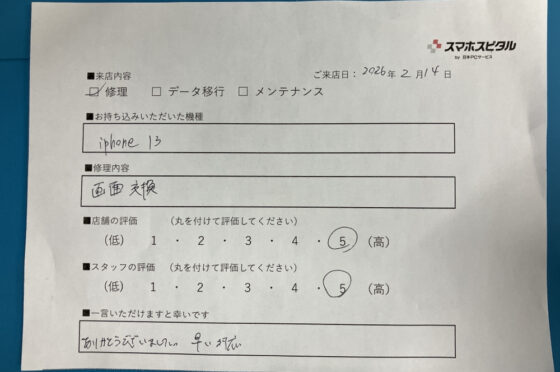 スマホスピタル
by 日本PCサービス
■来店内容
ご来店日：2026年 2月14日
☑ 修理 □ データ移行 □ メンテナンス
■お持ち込みいただいた機種
iphone 13
■修理内容
画面交換
■店舗の評価 （丸を付けて評価してください）
（低） 1 ・ 2 ・ 3 ・ 4 ・ 5 （高）
■スタッフの評価 （丸を付けて評価してください）
（低） 1 ・ 2 ・ 3 ・ 4 ・ 5 （高）
■一言いただけますと幸いです
ありがとうございました。 早い対応